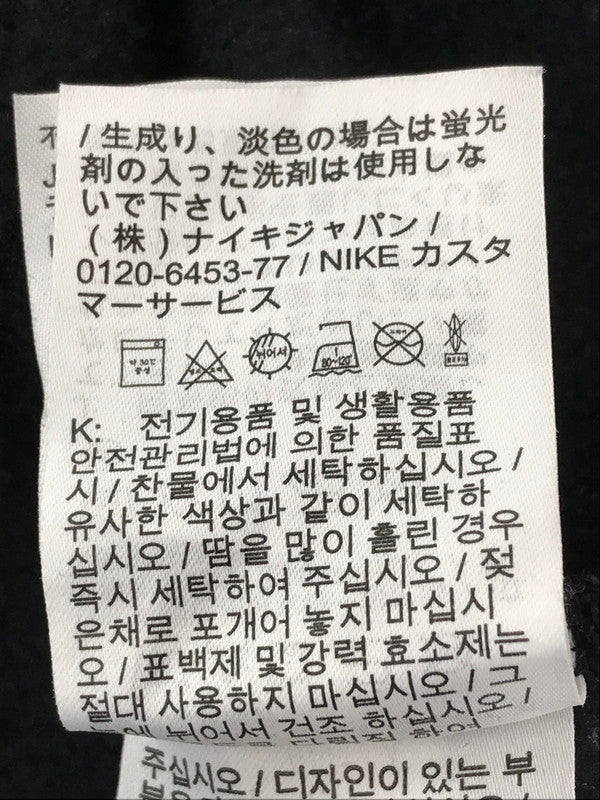 / 生成り、淡色の場合は蛍光
剤の入った洗剤は使用しな
いで下さい
(株)ナイキジャパン /
0120-6453-77 / NIKE カスタ
マーサービス
약 30℃ 중성
뉘어서
80~120℃
K: 전기용품 및 생활용품
안전관리법에 의한 품질표
시 / 찬물에서 세탁하십시오 /
유사한 색상과 같이 세탁하
십시오 / 땀을 많이 흘린 경우
즉시 세탁하여 주십시오 / 젖
은채로 포개어 놓지 마십시
오 / 표백제 및 강력 효소제는
절대 사용하지 마십시오 / 그
늘에 뉘어서 건조 하십시오 /
주십시오 / 디자인이 있는 부